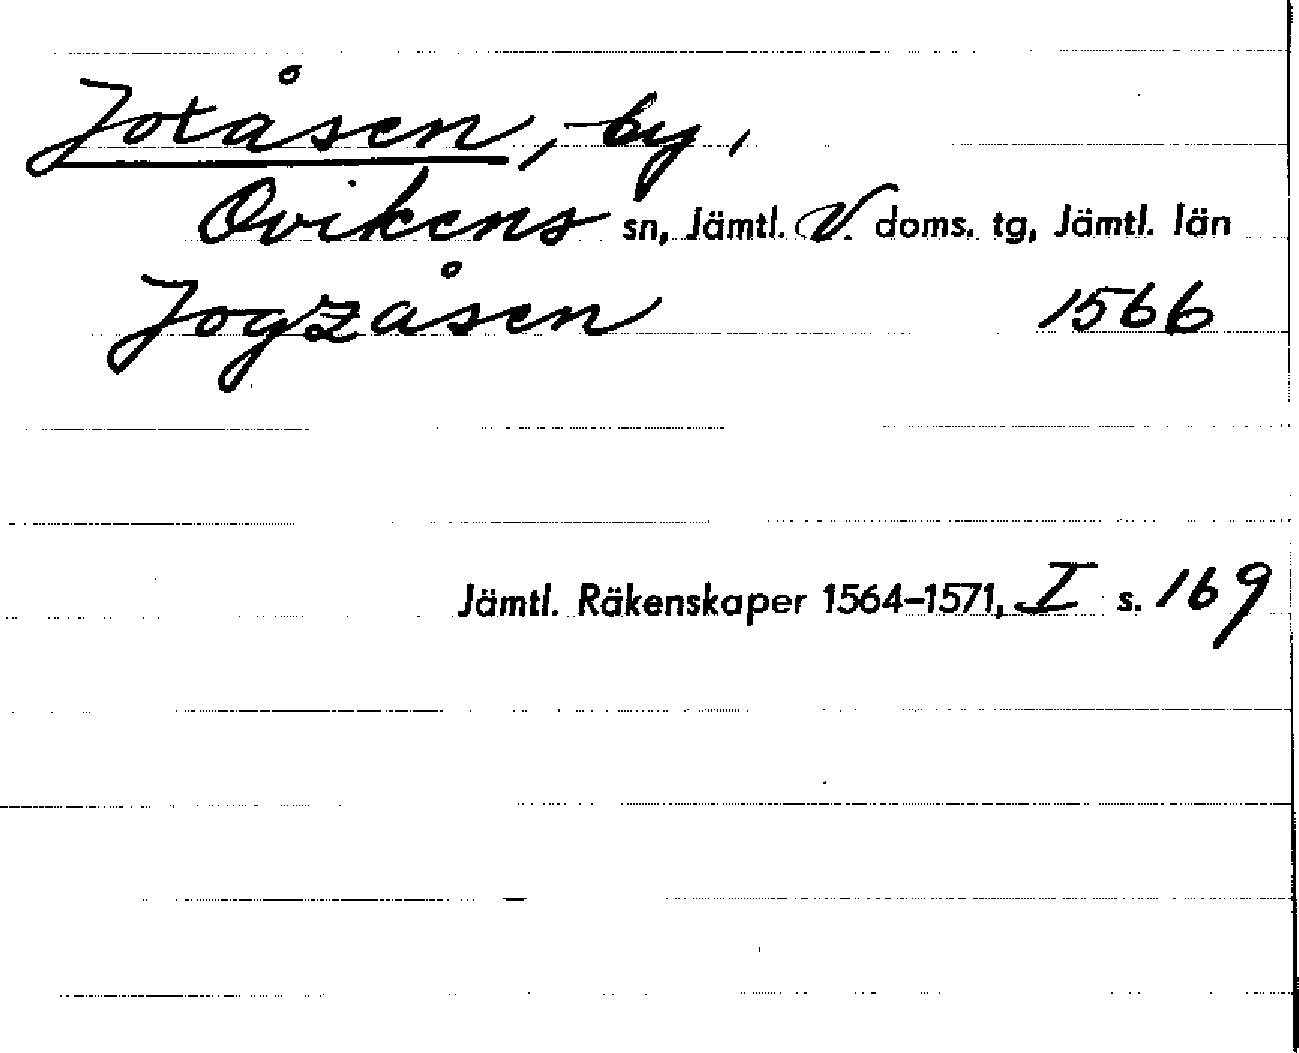 Jotåsen, by,
Ovikens sn, Jämtl. V. doms. tg, Jämtl. län
Jogzåsen 1566
Jämtl. Räkenskaper 1564-1571, I s. 169